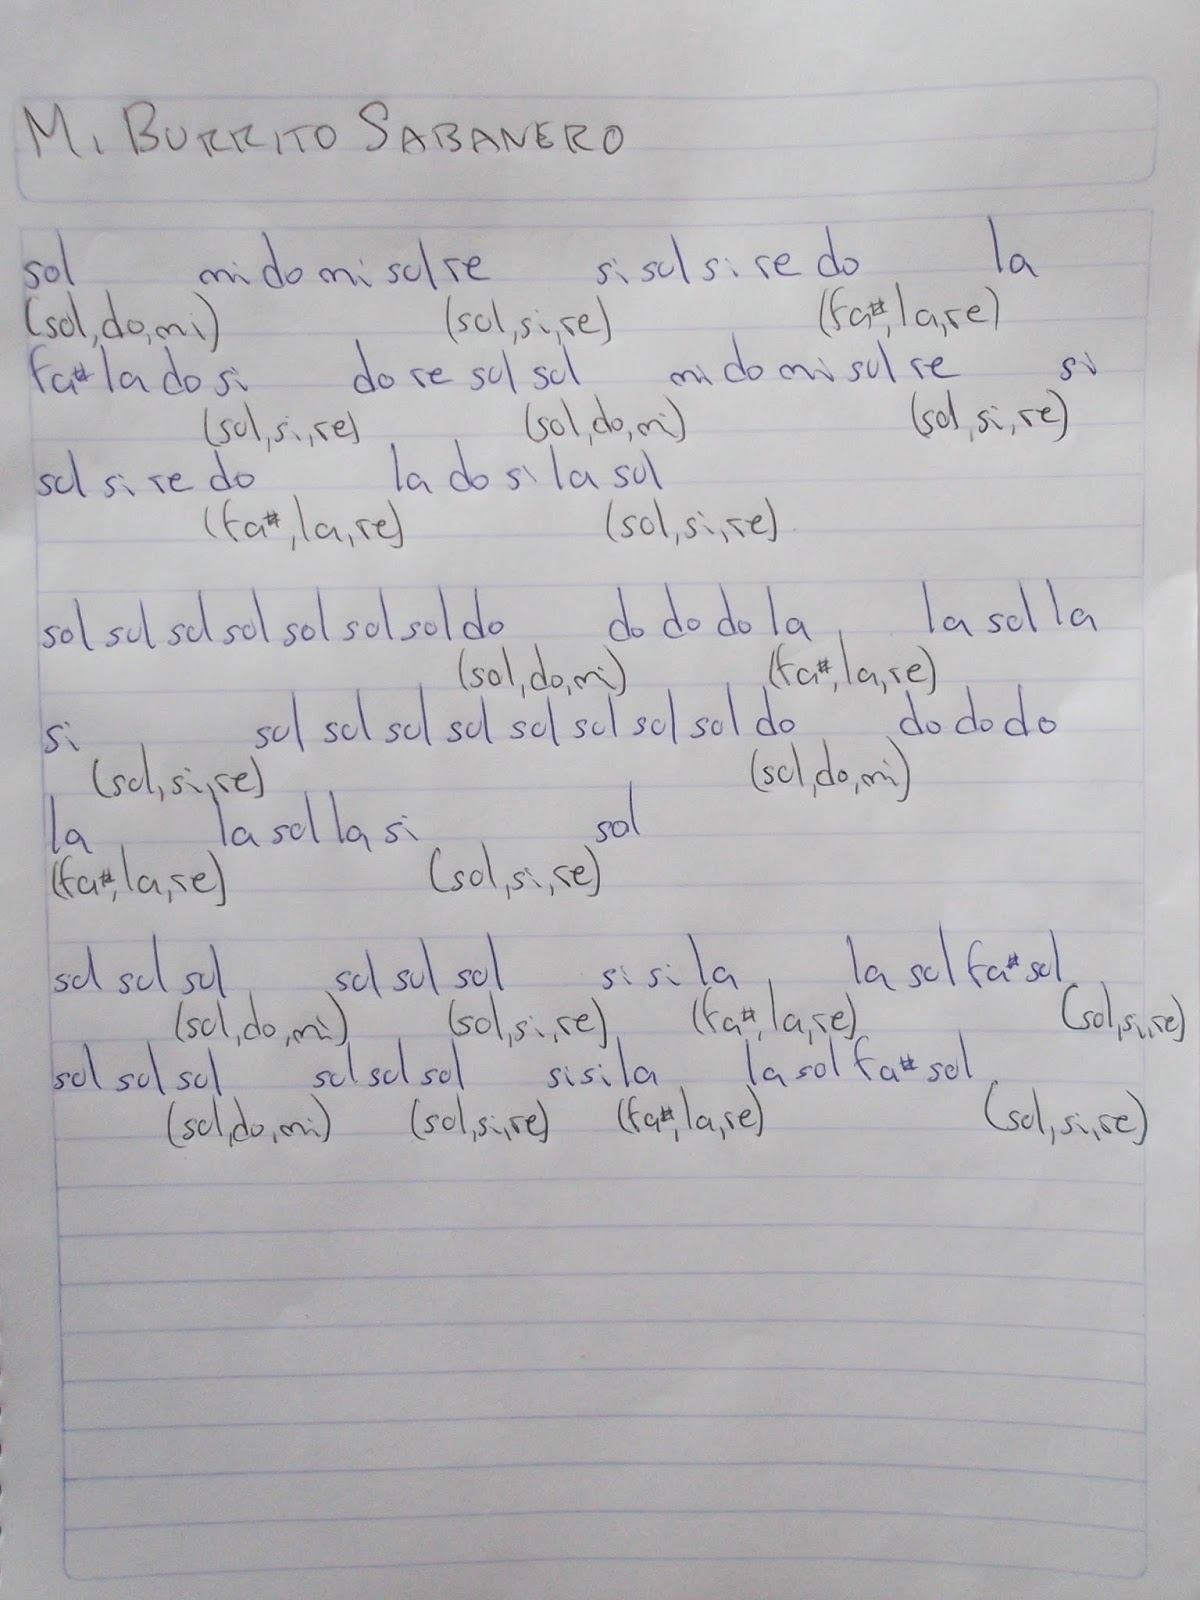 MI BURRITO SABANERO
sol mi do mi sol re si sol si re do la
(sol,do,mi) (sol,si,re) (fa#,la,re)
fa# la do si do re sol sol mi do mi sol re si
(sol,si,re) (sol,do,mi) (sol,si,re)
sol si re do la do si la sol
(fa#,la,re) (sol,si,re)
sol sol sol sol sol sol sol do do do do la la sol la
(sol,do,mi) (fa#,la,re)
si sol sol sol sol sol sol sol sol do do do do
(sol,si,re) (sol,do,mi)
la la sol la si sol
(fa#,la,re) (sol,si,re)
sol sol sol sol sol sol si si la la sol fa# sol
(sol,do,mi) (sol,si,re) (fa#,la,re) (sol,si,re)
sol sol sol sol sol sol si si la la sol fa# sol
(sol,do,mi) (sol,si,re) (fa#,la,re) (sol,si,re)